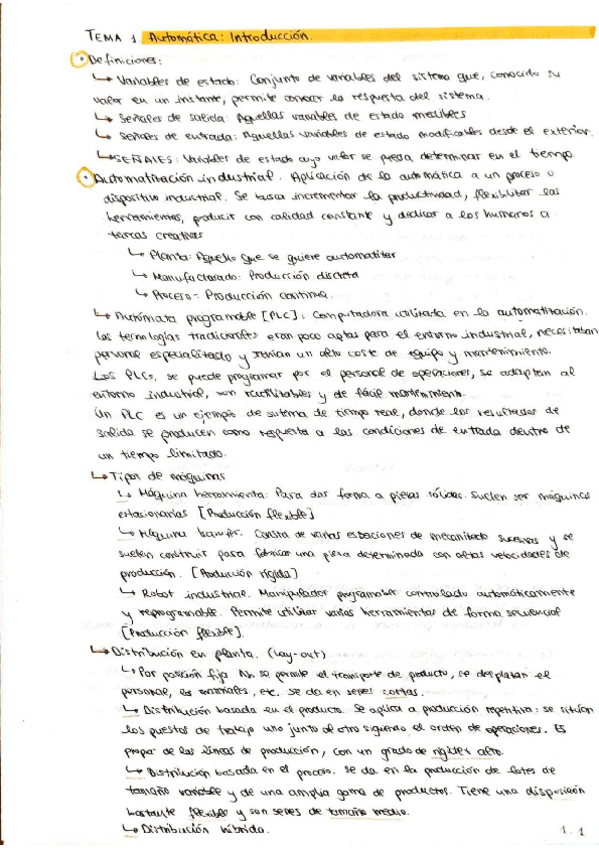 TEMA 1 Automática: Introducción.
• Definiciones:
↳ Variables de estado: Conjunto de variables del sistema que, conocido su
valor en un instante, permite conocer la respuesta del sistema.
↳ Señales de salida: Aquellas variables de estado medibles
↳ Señales de entrada: Aquellas variables de estado modificables desde el exterior.
↳ SEÑALES: Variables de estado cuyo valor se pueda determinar en el tiempo.
• Automatización industrial. Aplicación de la automática a un proceso o
dispositivo industrial. Se busca incrementar la productividad, flexibilizar las
herramientas, producir con calidad constante y dedicar a los humanos a
tareas creativas
↳ Planta: Aquello que se quiere automatizar
↳ Manufacturado: Producción discreta
↳ Proceso: Producción continua.
↳ Autómata programable [PLC]: Computadora utilizada en la automatización.
Las tecnologías tradicionales eran poco aptas para el entorno industrial, necesitaban
personal especializado y tenían un alto coste de equipo y mantenimiento.
Los PLCs, se puede programar por el personal de operaciones, se adaptan al
entorno industrial, son reutilizables y de fácil mantenimiento.
Un PLC es un ejemplo de sistema de tiempo real, donde los resultados de
salida se producen como respuesta a las condiciones de entrada dentro de
un tiempo limitado.
↳ Tipos de máquinas
↳ Máquina herramienta. Para dar forma a piezas sólidas. Suelen ser máquinas
estacionarias [Producción flexible]
↳ Máquina transfer. Consta de varias estaciones de mecanizado sucesivas y se
suelen construir para fabricar una pieza determinada con altas velocidades de
producción. [Producción rígida]
↳ Robot industrial. Manipulador programable controlado automáticamente
y reprogramable. Permite utilizar varias herramientas de forma secuencial
[Producción flexible].
↳ Distribución en planta. (Lay-out)
↳ Por posición fija. No se permite el transporte de producto, se desplazan el
personal, los materiales, etc. se da en series cortas.
↳ Distribución basada en el producto. Se aplica a producción repetitiva: se sitúan
los puestos de trabajo uno junto al otro siguiendo el orden de operaciones. Es
propia de las líneas de producción, con un grado de rigidez alto.
↳ Distribución basada en el proceso. se da en la producción de lotes de
tamaño variable y de una amplia gama de productos. Tiene una disposición
bastante flexible y son series de tamaño medio.
↳ Distribución híbrida.
1.1